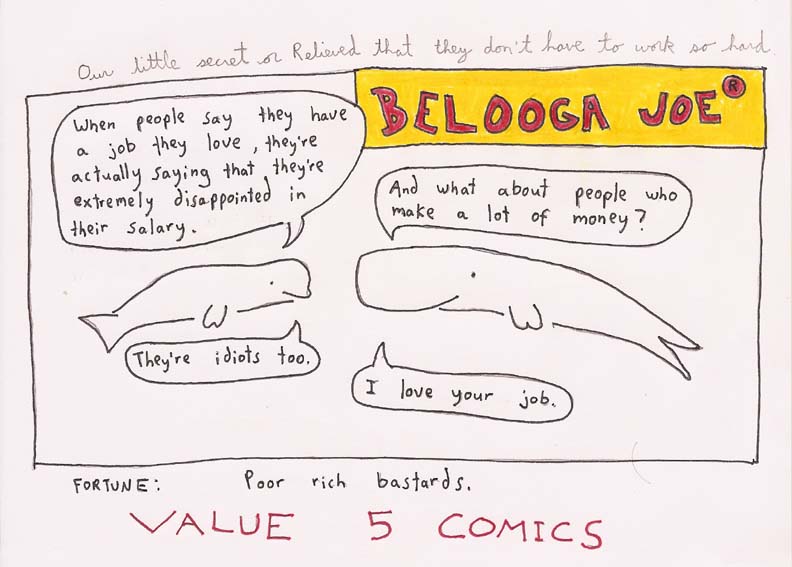 Our little secret or Relieved that they don't have to work so hard.
BELOOGA JOE®
When people say they have
a job they love, they're
actually saying that they're
extremely disappointed in
their salary.
And what about people who
make a lot of money?
They're idiots too.
I love your job.
FORTUNE: Poor rich bastards.
VALUE 5 COMICS